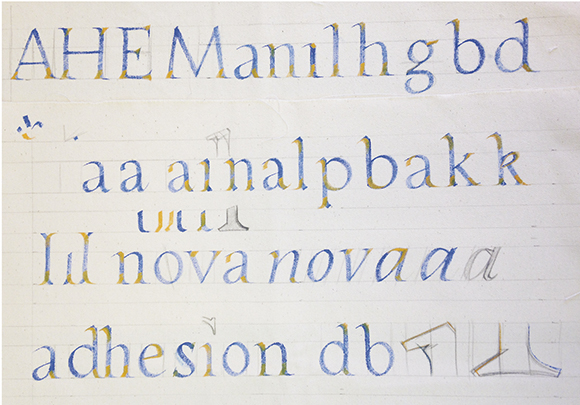 AHE Manılh g b d
aa aınalpbakk
lıl nova novaaa
adhesion db